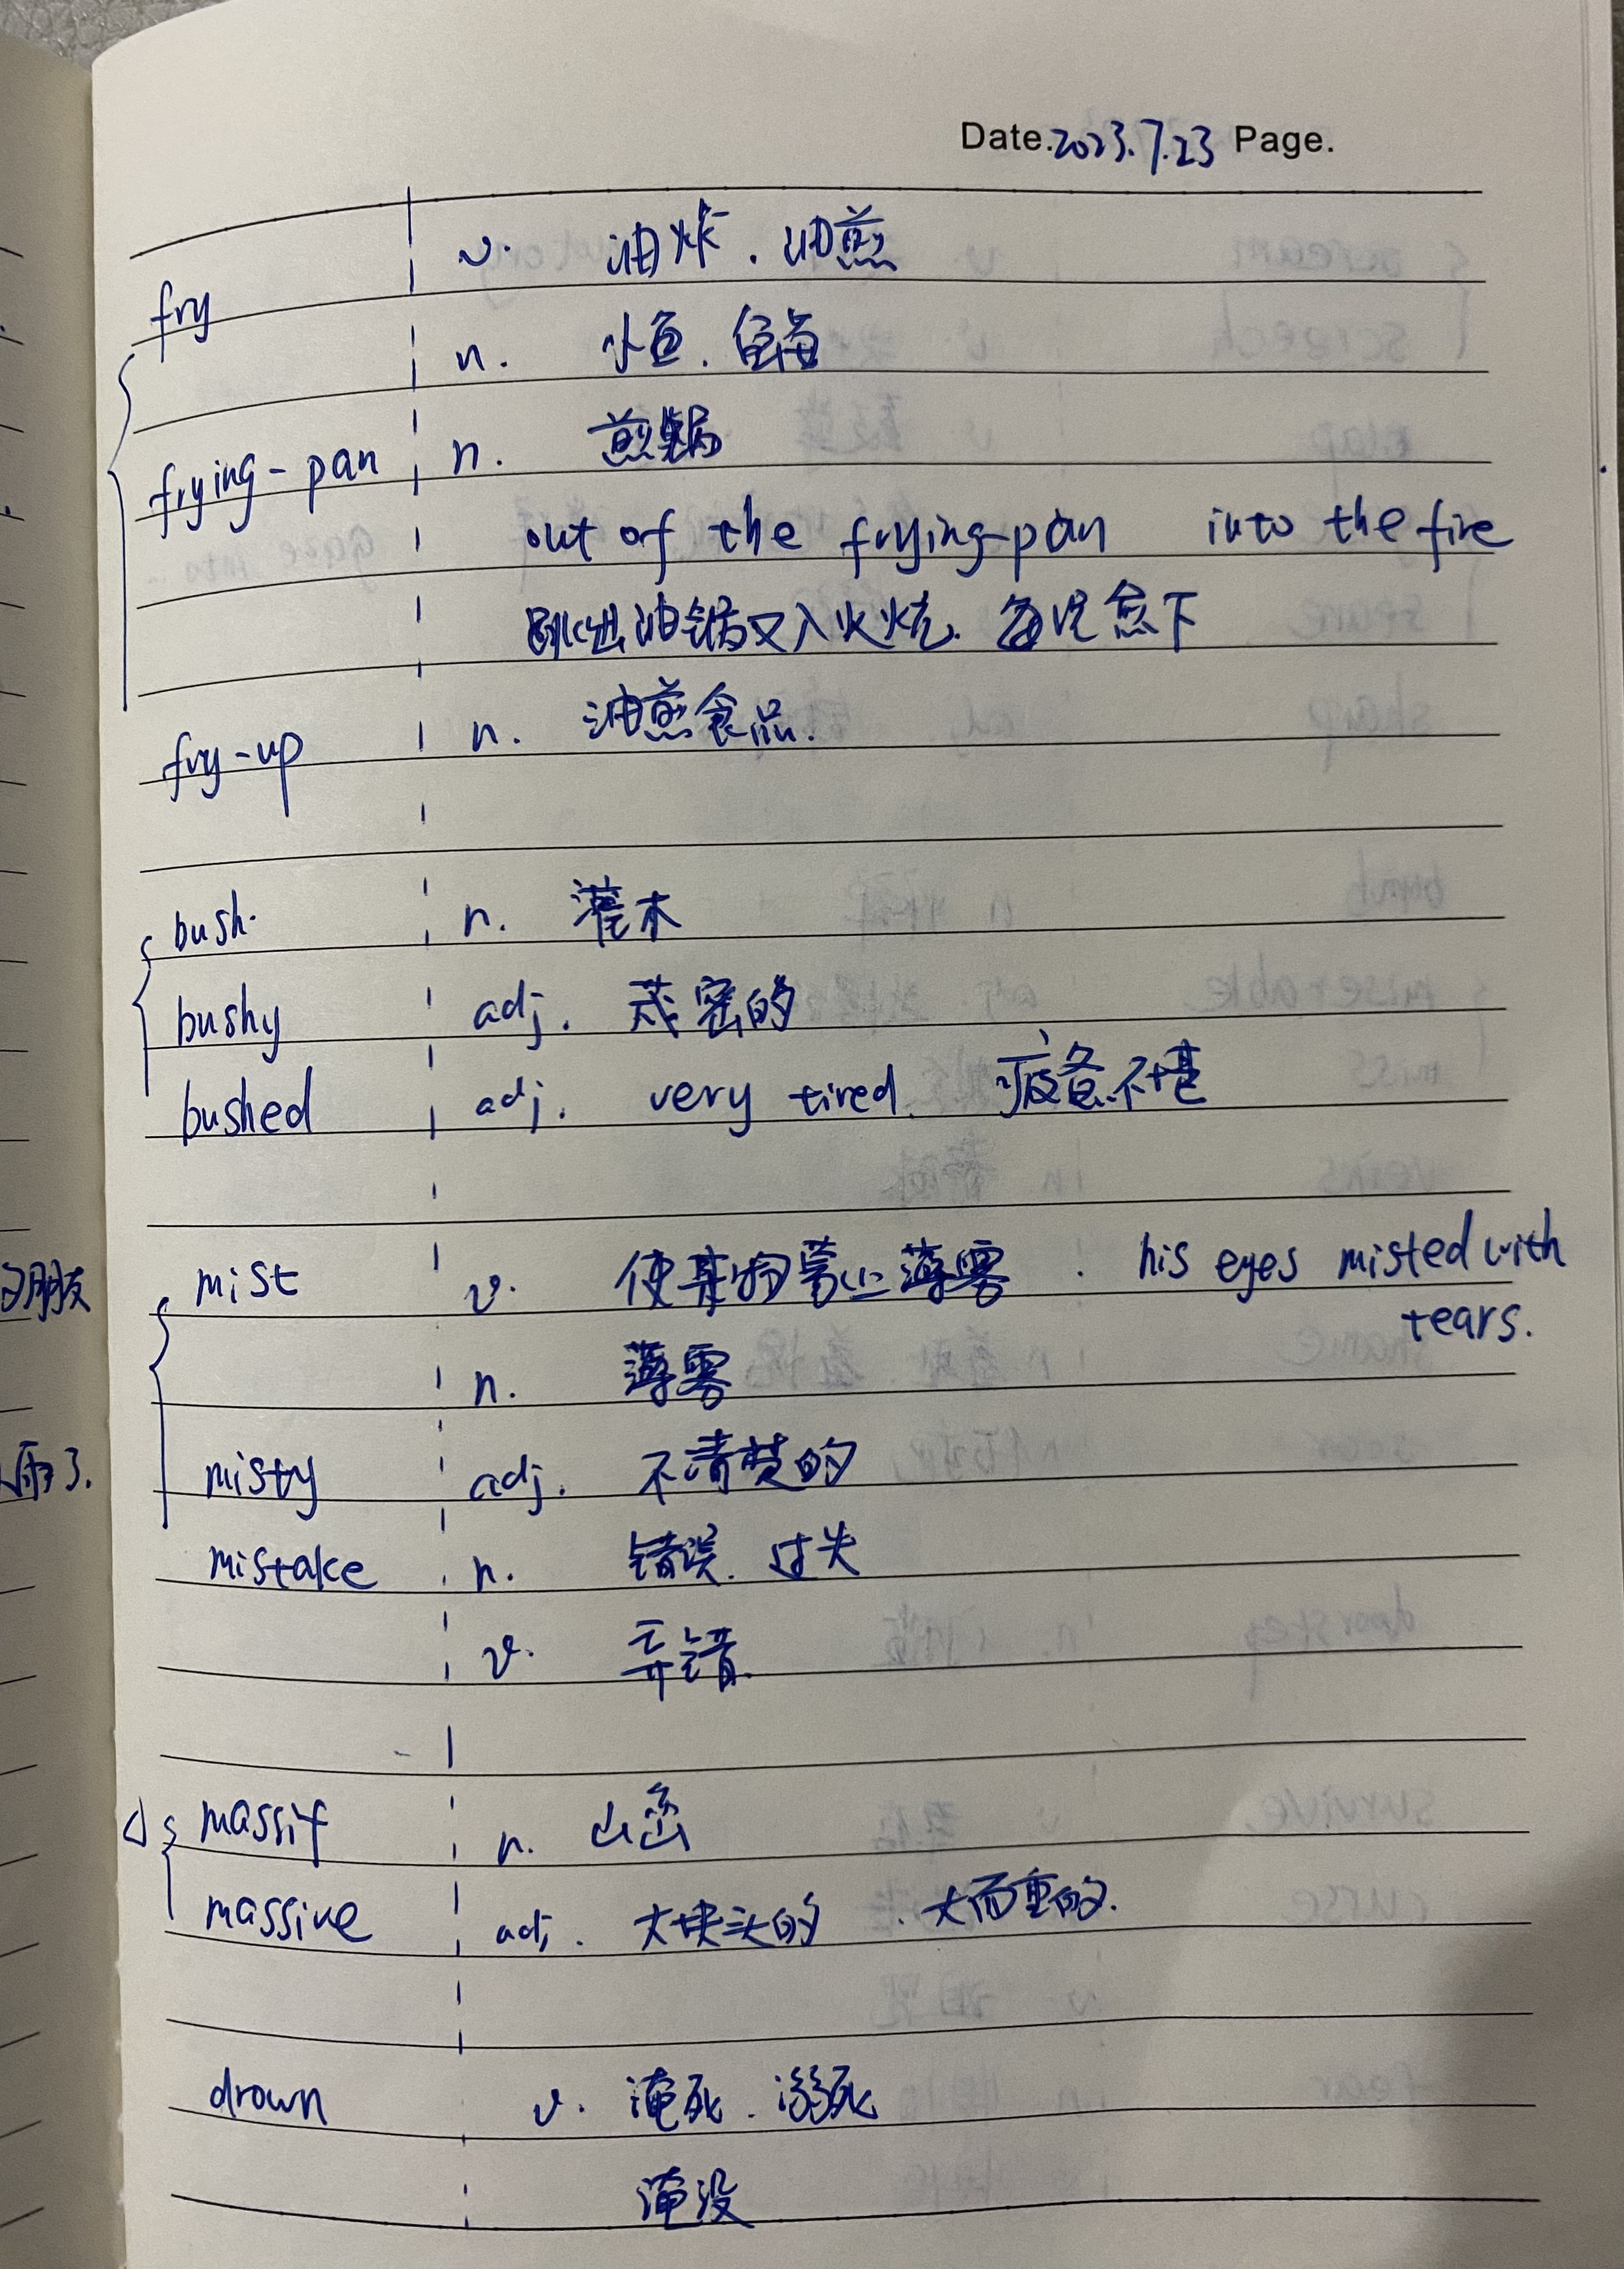 Date.2023.7.23 Page.
fry v. 油炸.油煎
n. 小鱼.鱼苗
frying-pan n. 煎锅
out of the frying-pan into the fire
跳出油锅又入火坑. 每况愈下
fry-up n. 油煎食品.
bush. n. 灌木
bushy adj. 茂密的
bushed adj. very tired. 疲惫不堪
mist v. 使某物蒙上薄雾. his eyes misted with
tears.
n. 薄雾
misty adj. 不清楚的
mistake n. 错误. 过失
v. 弄错.
massif n. 山峦
massive adj. 大块头的. 大而重的.
drown v. 淹死.溺死
淹没